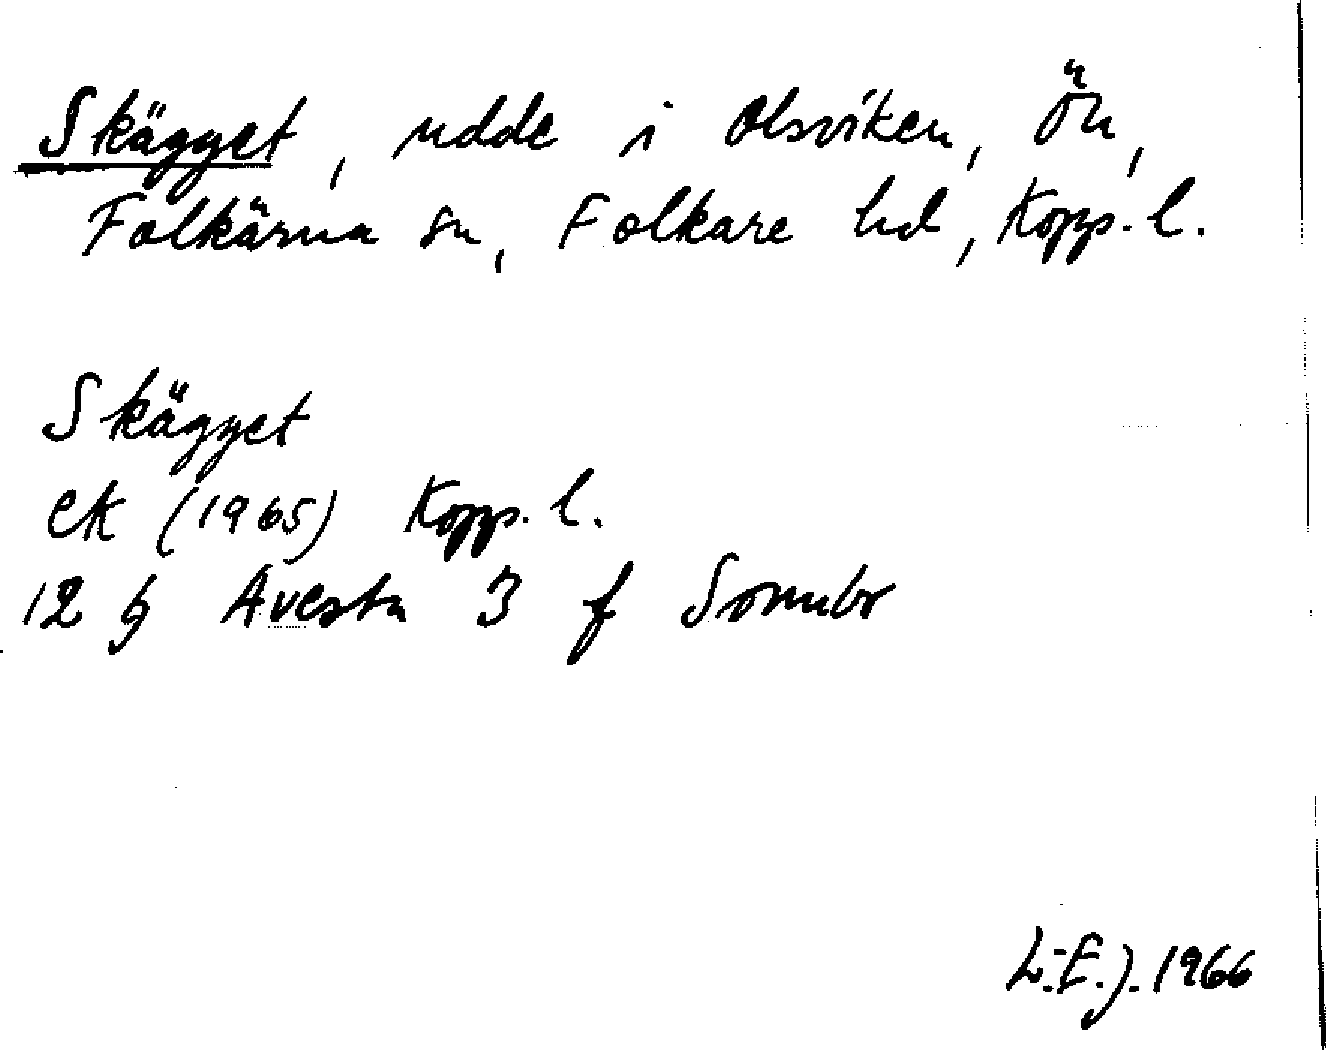 Skägget, udde i Olsviken, Ön,
Folkärna sn, Folkare hd, Kopp. l.
Skägget
ek (1965) Kopp. l.
12 G Avesta 3 f Sonnbo
L.-E. J. 1966